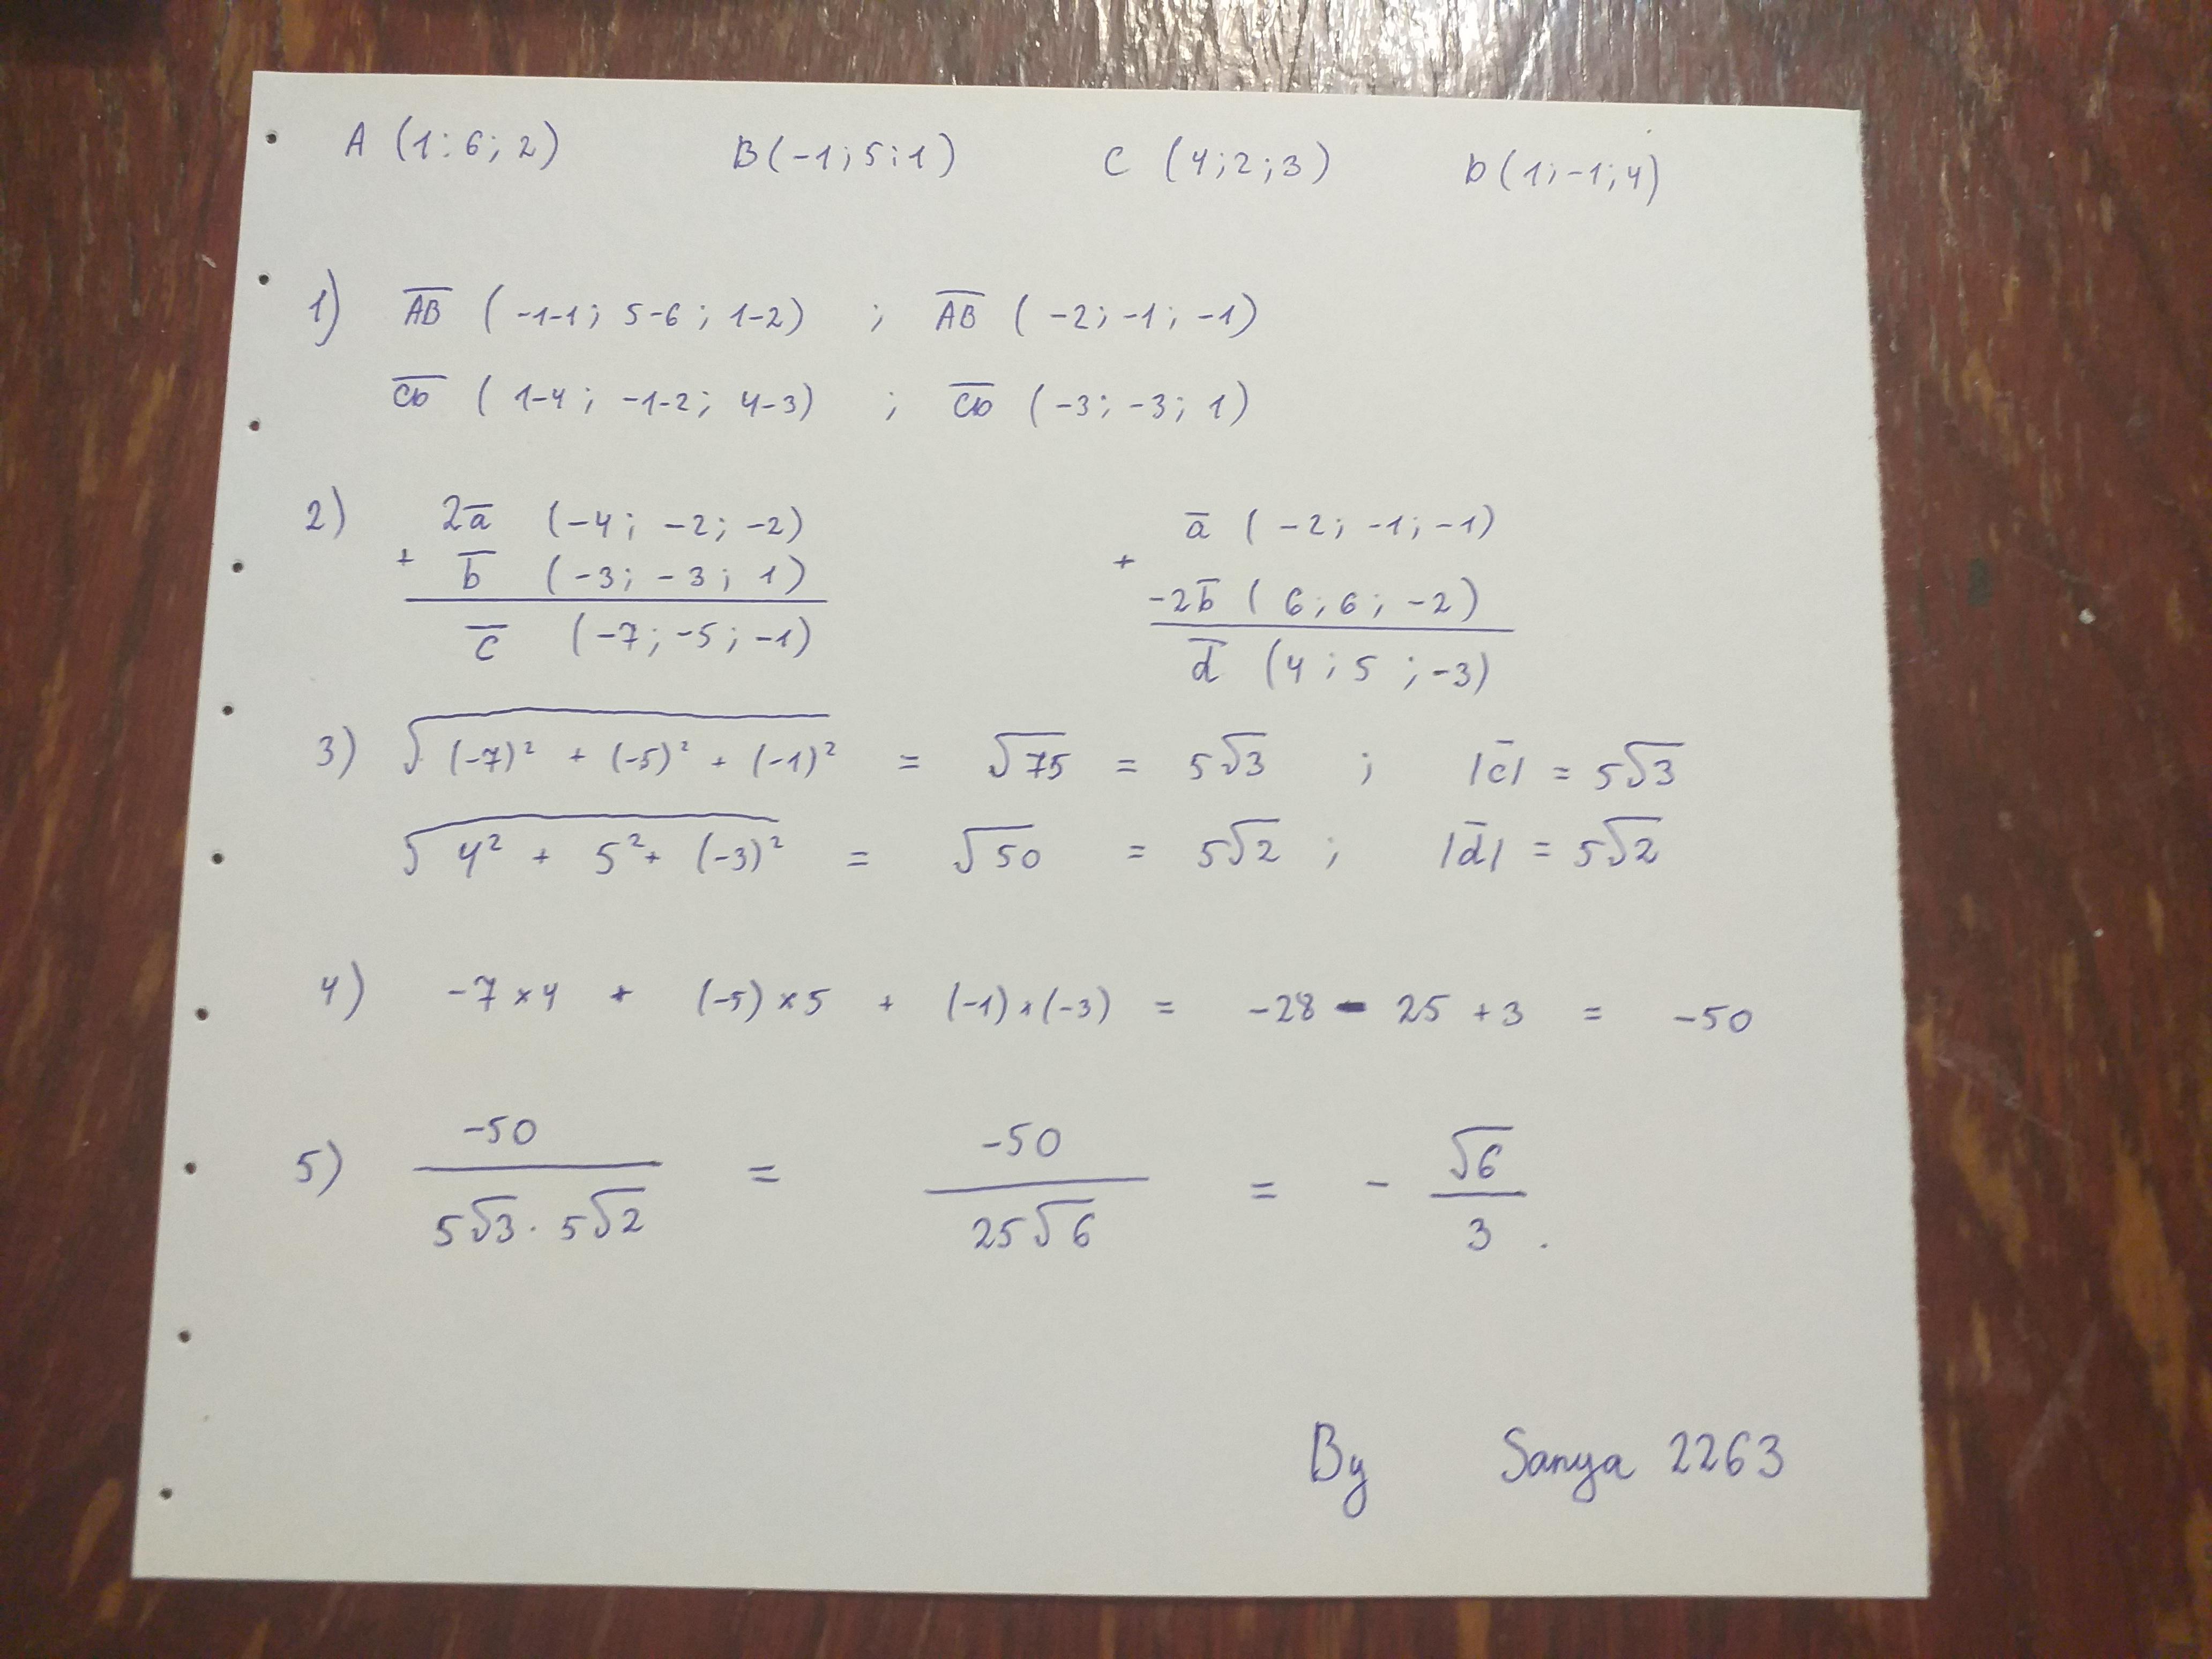 A (1; 6; 2) B(-1; 5; 1) C (4; 2; 3) D(1; -1; 4)
1) A̅B̅ (-1-1; 5-6; 1-2) ; A̅B̅ (-2; -1; -1)
C̅D̅ (1-4; -1-2; 4-3) ; C̅D̅ (-3; -3; 1)
2) 2a̅ (-4; -2; -2) a̅ (-2; -1; -1)
+ b̅ (-3; -3; 1) + -2b̅ (6; 6; -2)
c̅ (-7; -5; -1) d̅ (4; 5; -3)
3) √((-7)² + (-5)² + (-1)²) = √75 = 5√3 ; |c̅| = 5√3
√(4² + 5² + (-3)²) = √50 = 5√2 ; |d̅| = 5√2
4) -7×4 + (-5)×5 + (-1)×(-3) = -28 - 25 + 3 = -50
5) -50/(5√3 · 5√2) = -50/(25√6) = - √6/3 .
By Sanya 2263